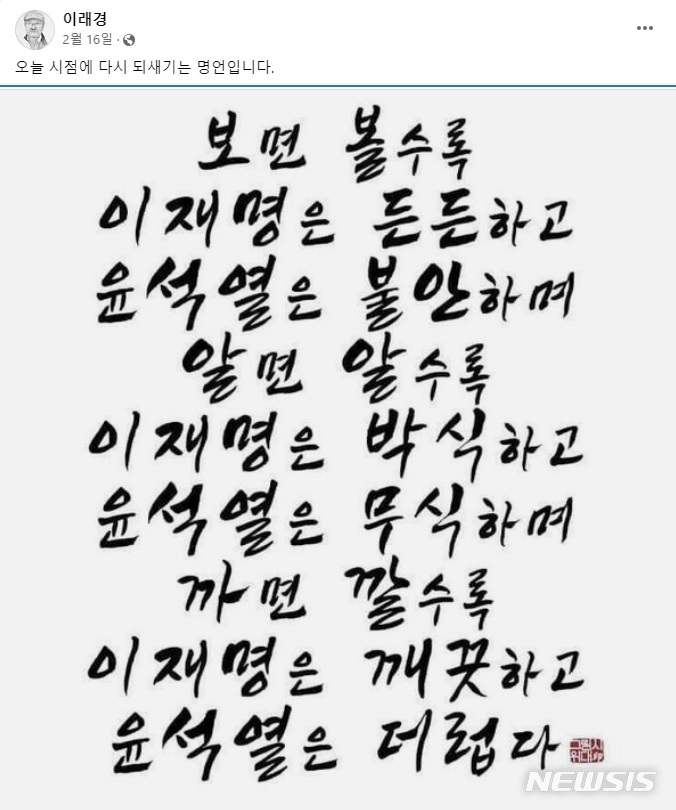 이래경
2월 16일 ·
오늘 시점에 다시 되새기는 명언입니다.
보면 볼수록
이재명은 든든하고
윤석열은 불안하며
알면 알수록
이재명은 박식하고
윤석열은 무식하며
까면 깔수록
이재명은 깨끗하고
윤석열은 더럽다
NEWSIS